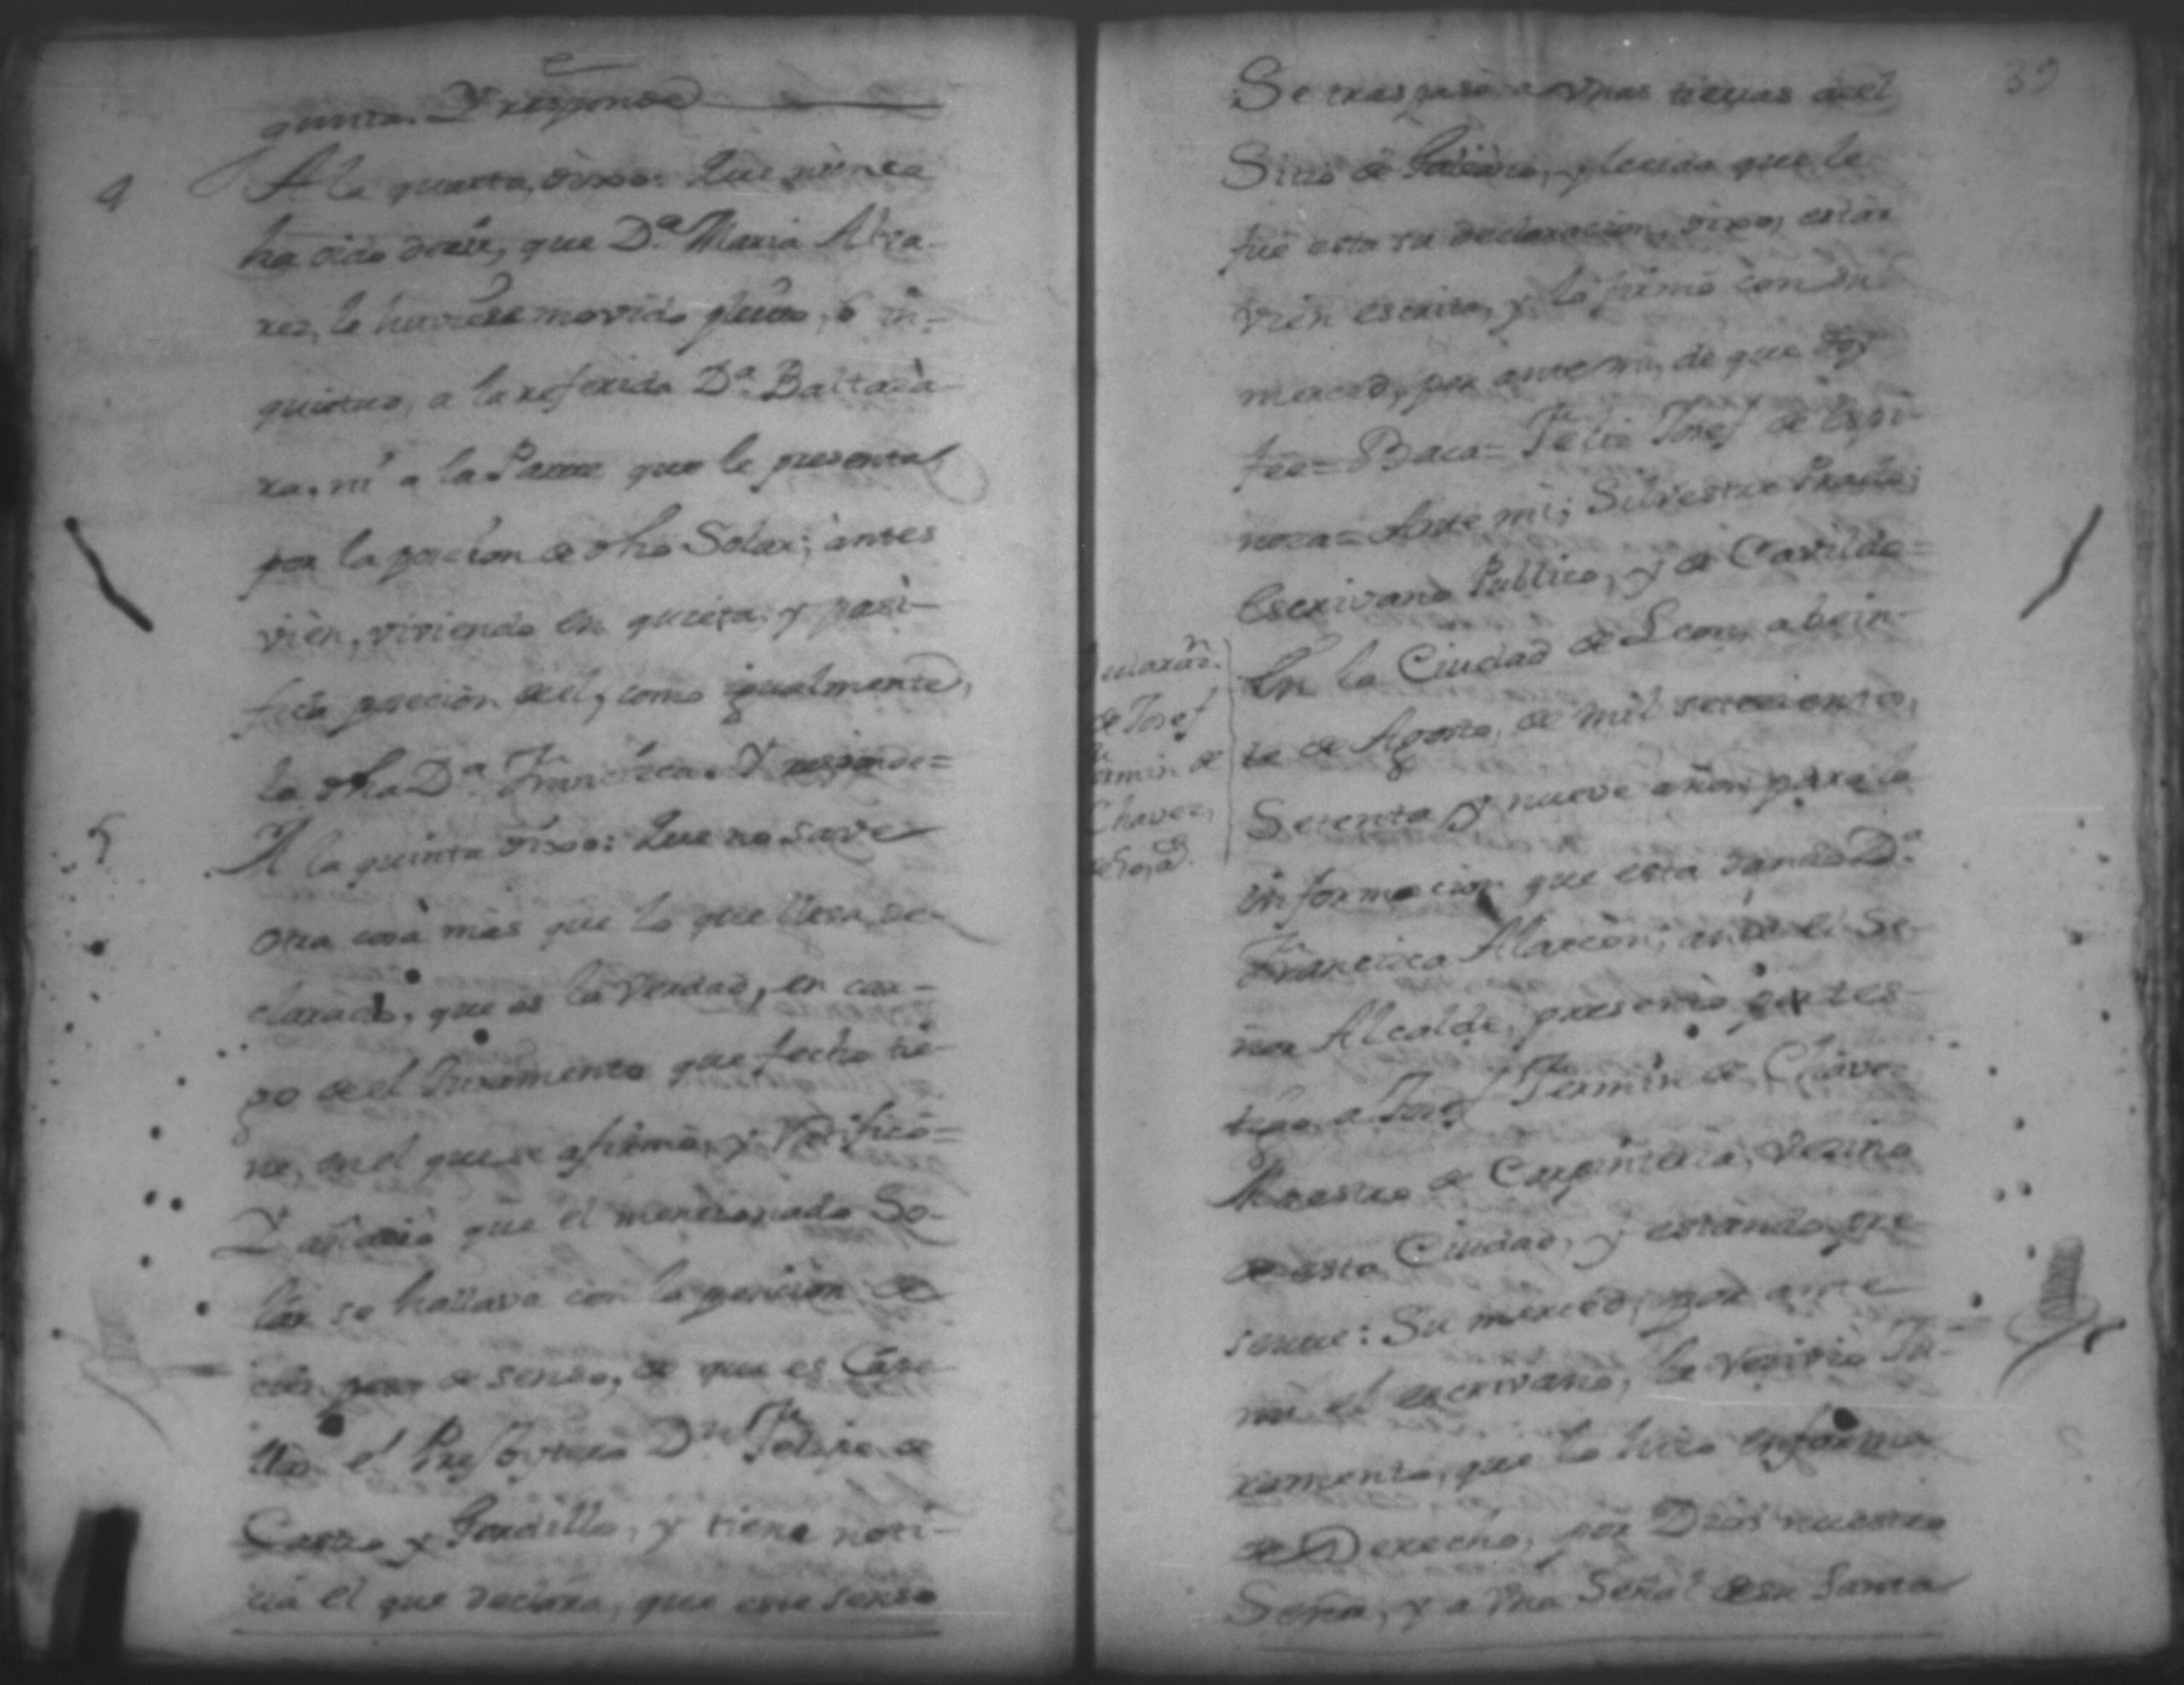 gunta. Y responde
4
A la quarta, dixo: Que nunca
ha oido decir, que D.ª Maria Alva-
rez, le huviese movido pleito, ó in-
quietud, a la referida D.ª Baltaza-
ra, ni a la Parte que le presenta
por la posecion de dho Solar; antes
vien, viviendo en quieta, y pasi-
fica posecion de el, como igualmente,
la dha D.ª Francisca. Y responde=
5
A la quinta dixo: Que no save
otra cosa mas que lo que lleva de-
clarado, que es la verdad, en car-
go de el Juramento que fecho tie-
ne, en el que se afirmó, y ratificó=
Y añadio que el mencionado So-
lar se hallava con la pencion de
de senso, de que es Cape-
llan el Presbytero D.n Felipe de
Castro y Gordillo, y tiene noti-
cia el que declara, que este senso
39
Se traspasó a unas tierras de el
Sitio de y leida que le
fue esta su declaracion, dixo, estar
vien escrita, y lo firmó con su
merced, por ante mi, de que doy
fee= Baca= Felix Josef de Espi-
noza= Ante mi; Silvestre Prado;
Escrivano Publico, y de Cavildo=
de Josef
Fermin de
Chavez,
En la Ciudad de Leon, a bein-
te de Agosto, de mil setecientos,
Setenta y nueve años, para la
informacion que esta dando D.ª
Francisca Alarcón; ante el Se-
ñor Alcalde, presentó por tes-
tigo, a Josef Fermin de Chaves
Maestro de Carpinteria, vecino
de esta Ciudad, y estando pre-
sente: Su merced, por ante
mi el escrivano, le recivió Ju-
ramento, que lo hizo en forma
de Derecho, por Dios nuestro
Señor, y a una Señal de su Santa